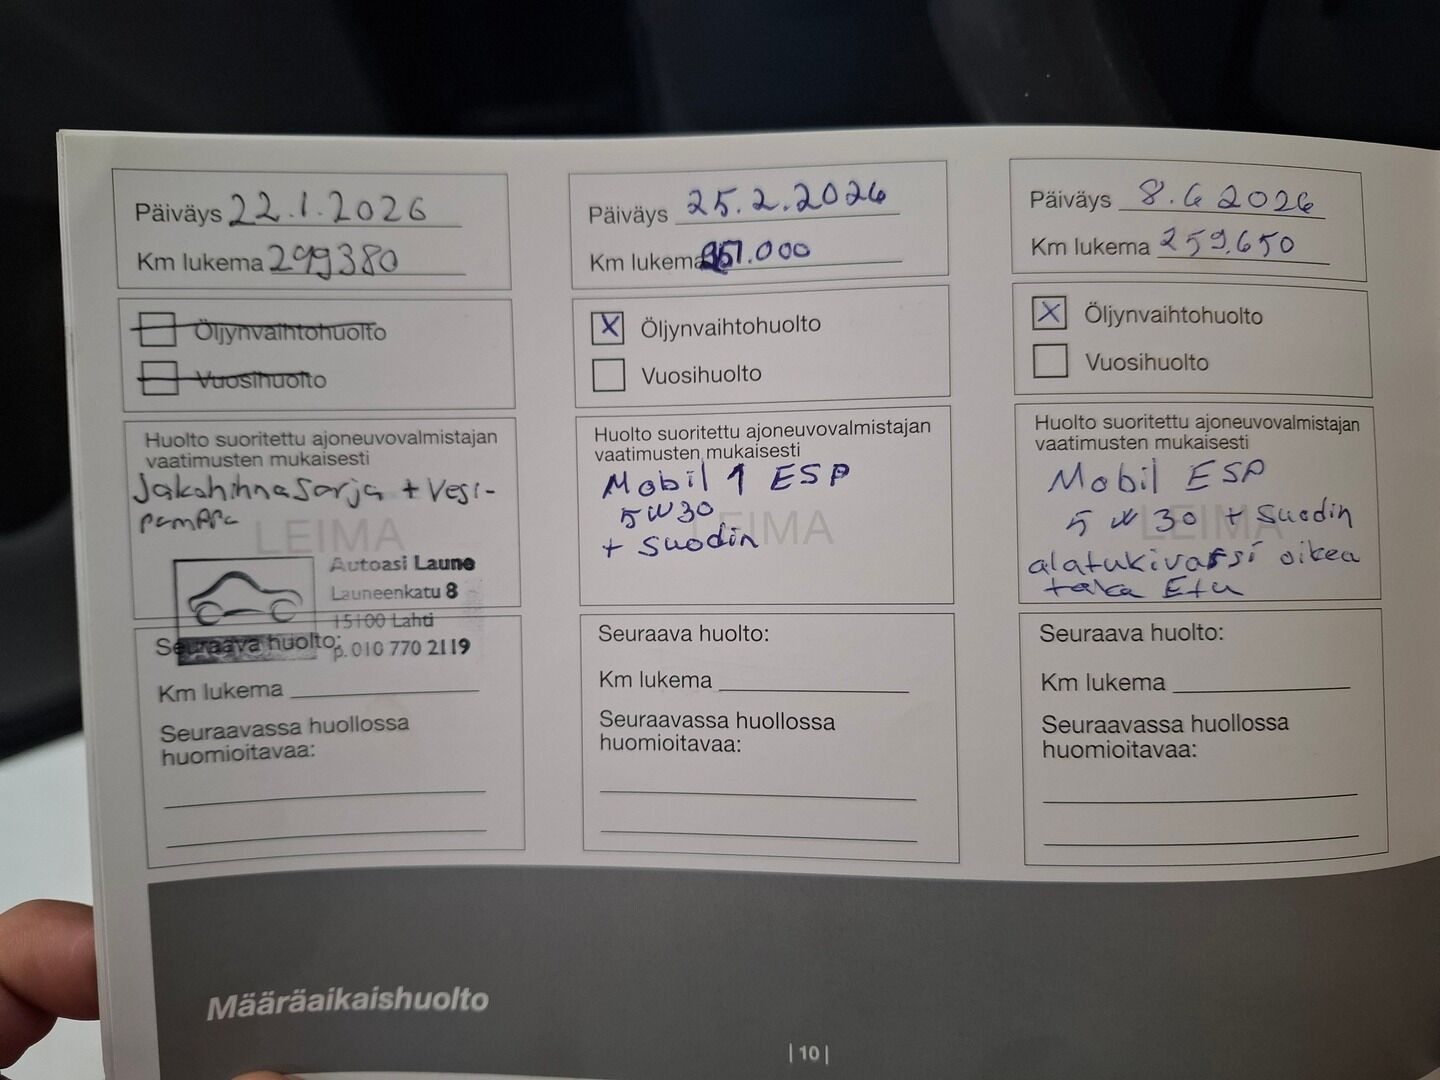 Päiväys 22.1.2026
Km lukema 299380
Öljynvaihtohuolto
Vuosihuolto
Huolto suoritettu ajoneuvovalmistajan
vaatimusten mukaisesti
Jakohihnasarja + Vesi-
pumppu
LEIMA
Autoasi Laune
Launeenkatu 8
15100 Lahti
p. 010 770 2119
Seuraava huolto:
Km lukema
Seuraavassa huollossa
huomioitavaa:
Päiväys 25.2.2026
Km lukema
X Öljynvaihtohuolto
Vuosihuolto
Huolto suoritettu ajoneuvovalmistajan
vaatimusten mukaisesti
Mobil 1 ESP
5W30
+ Suodin
LEIMA
Seuraava huolto:
Km lukema
Seuraavassa huollossa
huomioitavaa:
Päiväys 8.6 2026
Km lukema 259.650
X Öljynvaihtohuolto
Vuosihuolto
Huolto suoritettu ajoneuvovalmistajan
vaatimusten mukaisesti
Mobil ESP
5 W 30 + Suodin
LEIMA
alatukivarsi oikea
taka Etu
Seuraava huolto:
Km lukema
Seuraavassa huollossa
huomioitavaa:
Määräaikaishuolto
| 10 |